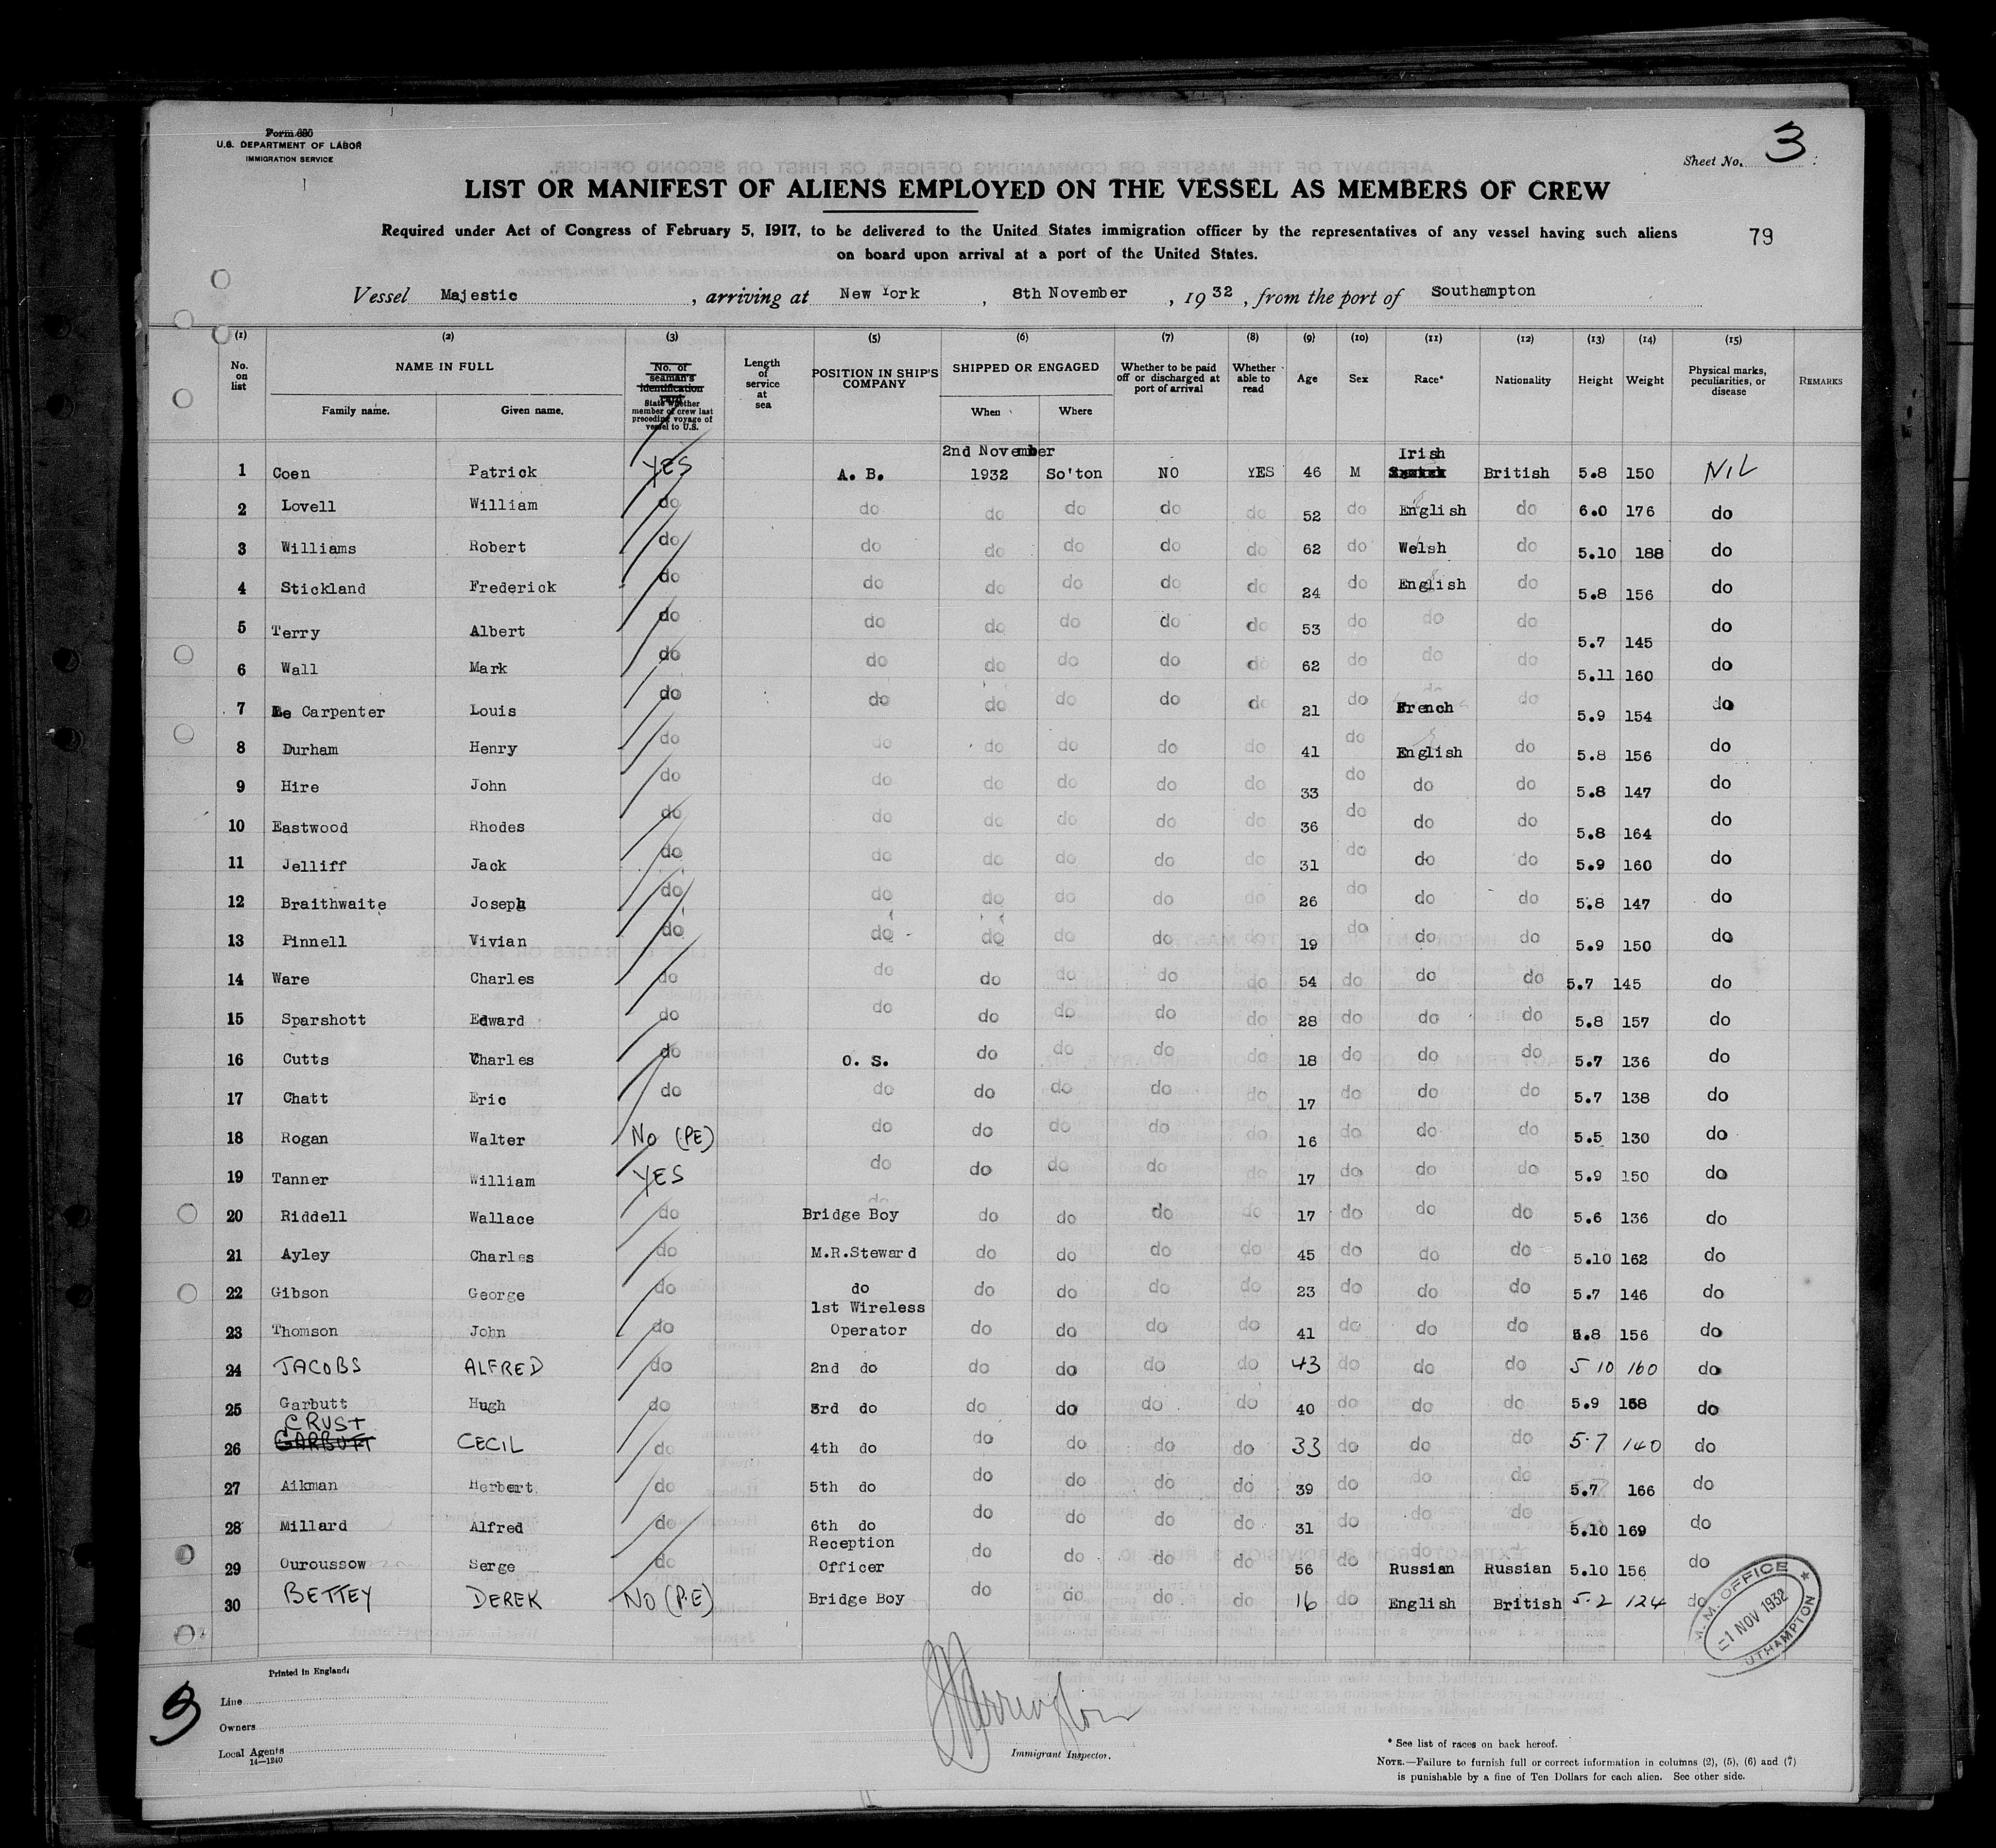 Form 680
U.S. DEPARTMENT OF LABOR
IMMIGRATION SERVICE
Sheet No. 3
LIST OR MANIFEST OF ALIENS EMPLOYED ON THE VESSEL AS MEMBERS OF CREW
Required under Act of Congress of February 5, 1917, to be delivered to the United States immigration officer by the representatives of any vessel having such aliens
on board upon arrival at a port of the United States.
79
Vessel Majestic, arriving at New York, 8th November, 1932, from the port of Southampton
(1) (2) (3) (5) (6) (7) (8) (9) (10) (11) (12) (13) (14) (15)
No. on list
NAME IN FULL
Family name. Given name.
No. of seaman's identification card
State whether member of crew last preceding voyage of vessel to U.S.
Length of service at sea
POSITION IN SHIP'S COMPANY
SHIPPED OR ENGAGED
When Where
Whether to be paid off or discharged at port of arrival
Whether able to read
Age
Sex
Race*
Nationality
Height
Weight
Physical marks, peculiarities, or disease
REMARKS
2nd November Irish
1 Coen Patrick YES A. B. 1932 So'ton NO YES 46 M British 5.8 150 NIL
2 Lovell William do do do do do do 52 do English do 6.0 176 do
3 Williams Robert do do do do do do 62 do Welsh do 5.10 188 do
4 Stickland Frederick do do do do do do 24 do English do 5.8 156 do
5 Terry Albert do do do do do do 53 do do do 5.7 145 do
6 Wall Mark do do do do do do 62 do do do 5.11 160 do
7 Le Carpenter Louis do do do do do do 21 do French do 5.9 154 do
8 Durham Henry do do do do do do 41 do English do 5.8 156 do
9 Hire John do do do do do do 33 do do do 5.8 147 do
10 Eastwood Rhodes do do do do do do 36 do do do 5.8 164 do
11 Jelliff Jack do do do do do do 31 do do do 5.9 160 do
12 Braithwaite Joseph do do do do do do 26 do do do 5.8 147 do
13 Pinnell Vivian do do do do do do 19 do do do 5.9 150 do
14 Ware Charles do do do do do do 54 do do do 5.7 145 do
15 Sparshott Edward do do do do do do 28 do do do 5.8 157 do
16 Cutts Charles do O. S. do do do do 18 do do do 5.7 136 do
17 Chatt Eric do do do do do do 17 do do do 5.7 138 do
18 Rogan Walter No (PE) do do do do do 16 do do do 5.5 130 do
19 Tanner William YES do do do do do 17 do do do 5.9 150 do
20 Riddell Wallace do Bridge Boy do do do do 17 do do do 5.6 136 do
21 Ayley Charles do M.R.Steward do do do do 45 do do do 5.10 162 do
22 Gibson George do do do do do do 23 do do do 5.7 146 do
1st Wireless
23 Thomson John do Operator do do do do 41 do do do 5.8 156 do
24 JACOBS ALFRED do 2nd do do do do do 43 do do do 5 10 160 do
25 Garbutt Hugh do 3rd do do do do do 40 do do do 5.9 168 do
CRUST
26 GARBUTT CECIL do 4th do do do do do 33 do do do 5.7 140 do
27 Aikman Herbert do 5th do do do do do 39 do do do 5.7 166 do
28 Millard Alfred do 6th do do do do do 31 do do do 5.10 169 do
Reception
29 Ouroussow Serge do Officer do do do do 56 do Russian Russian 5.10 156 do
30 BETTEY DEREK NO (P.E) Bridge Boy do do do do 16 do English British 5.2 124 do
M.M. OFFICE
1 NOV 1932
UTHAMPTON
Printed in England.
3
Line
Owners
Local Agents
14—1240
Immigrant Inspector.
* See list of races on back hereof.
NOTE.—Failure to furnish full or correct information in columns (2), (5), (6) and (7)
is punishable by a fine of Ten Dollars for each alien. See other side.